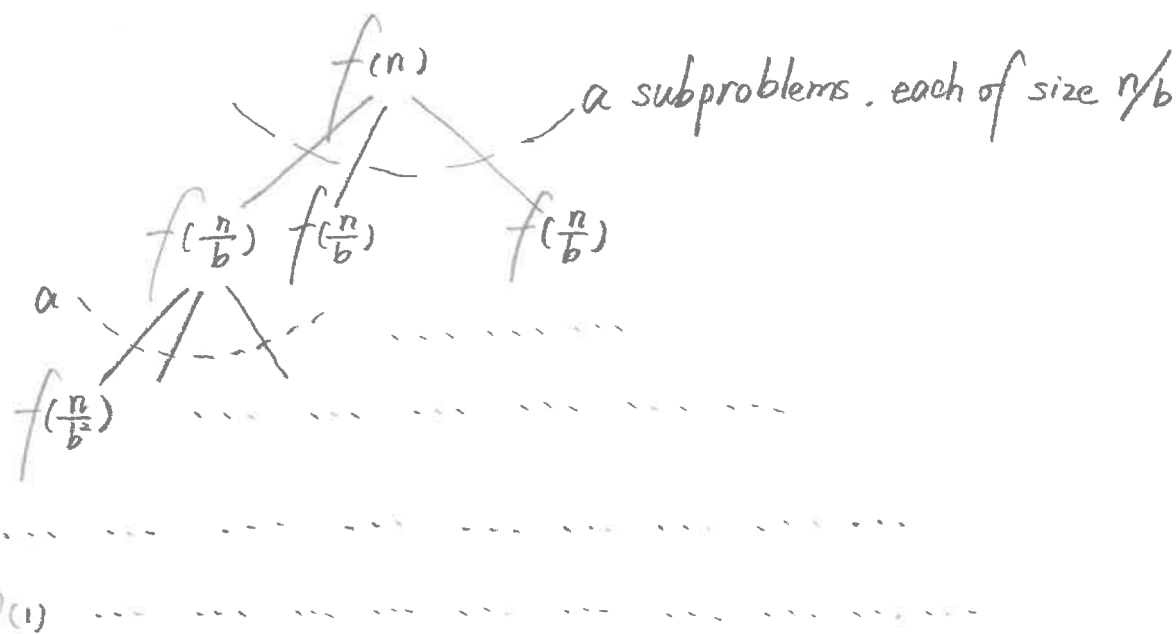 f(n)
a subproblems. each of size n/b
f(n/b) f(n/b) f(n/b)
a
...... ...
f(n/b²) ... ... ... ... ... ...
... ... ... ... ... ... ... ... ...
(1) ... ... ... ... ... ... ... ... ...